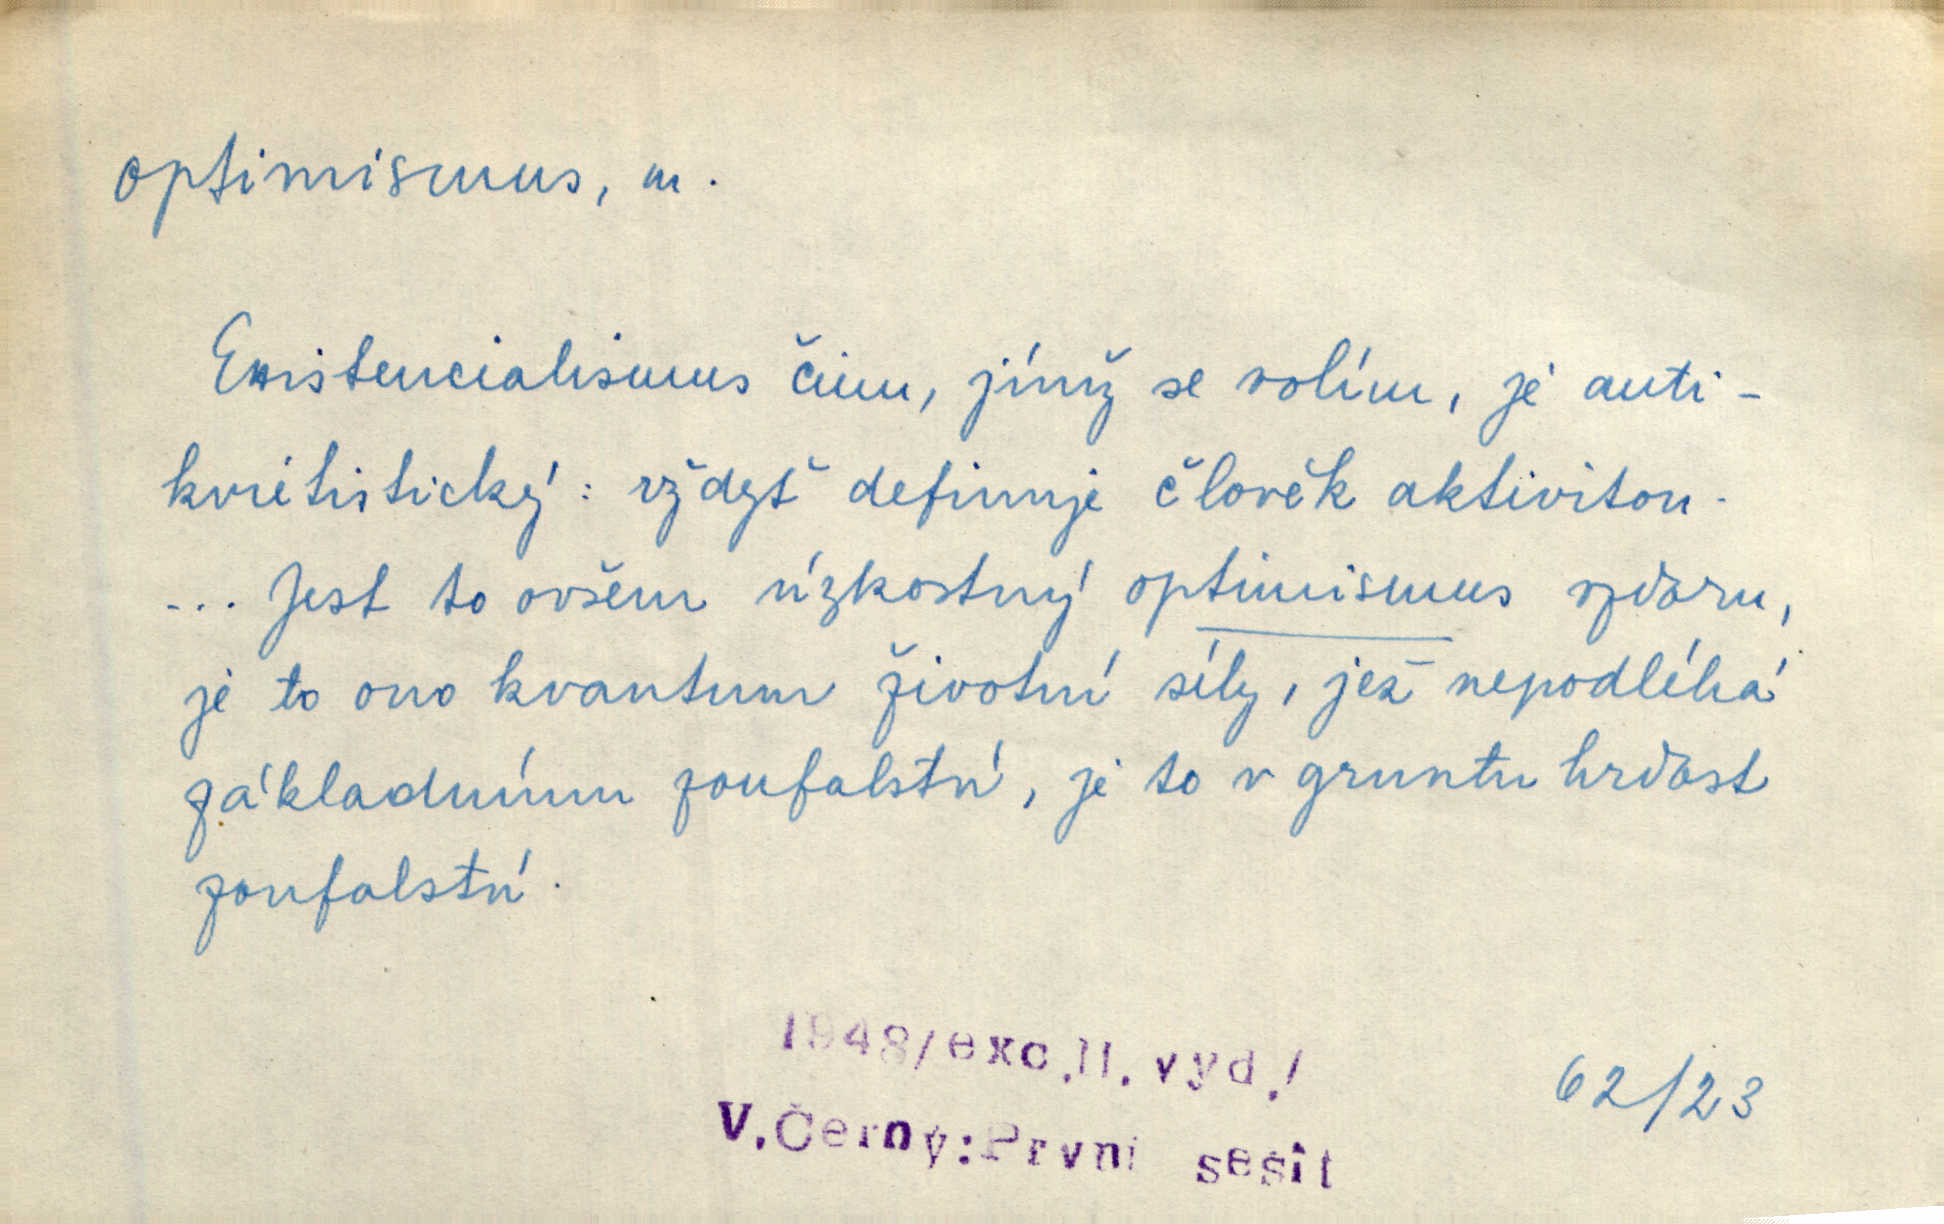 optimismus, m.
Existencialismus činu, jímž se volím, je anti-
kvietistický: vždyť definuje člověk aktivitou.
... Jest to ovšem úzkostný optimismus vzdoru,
je to ono kvantum životní síly, jež nepodléhá
základnímu zoufalství, je to v gruntu hrdost
zoufalství.
1948/exc.II.vyd./
V.Černý:První sešit
62/23